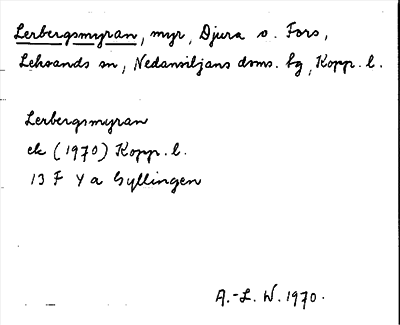 Lerbergsmyran, myr, Djura o. Fors,
Leksands sn, Nedansiljans doms. hg, Kopp. l.
Lerbergsmyran
ek (1970) Kopp. l.
13 F Y a Gyllingen
A.-L. W. 1970.